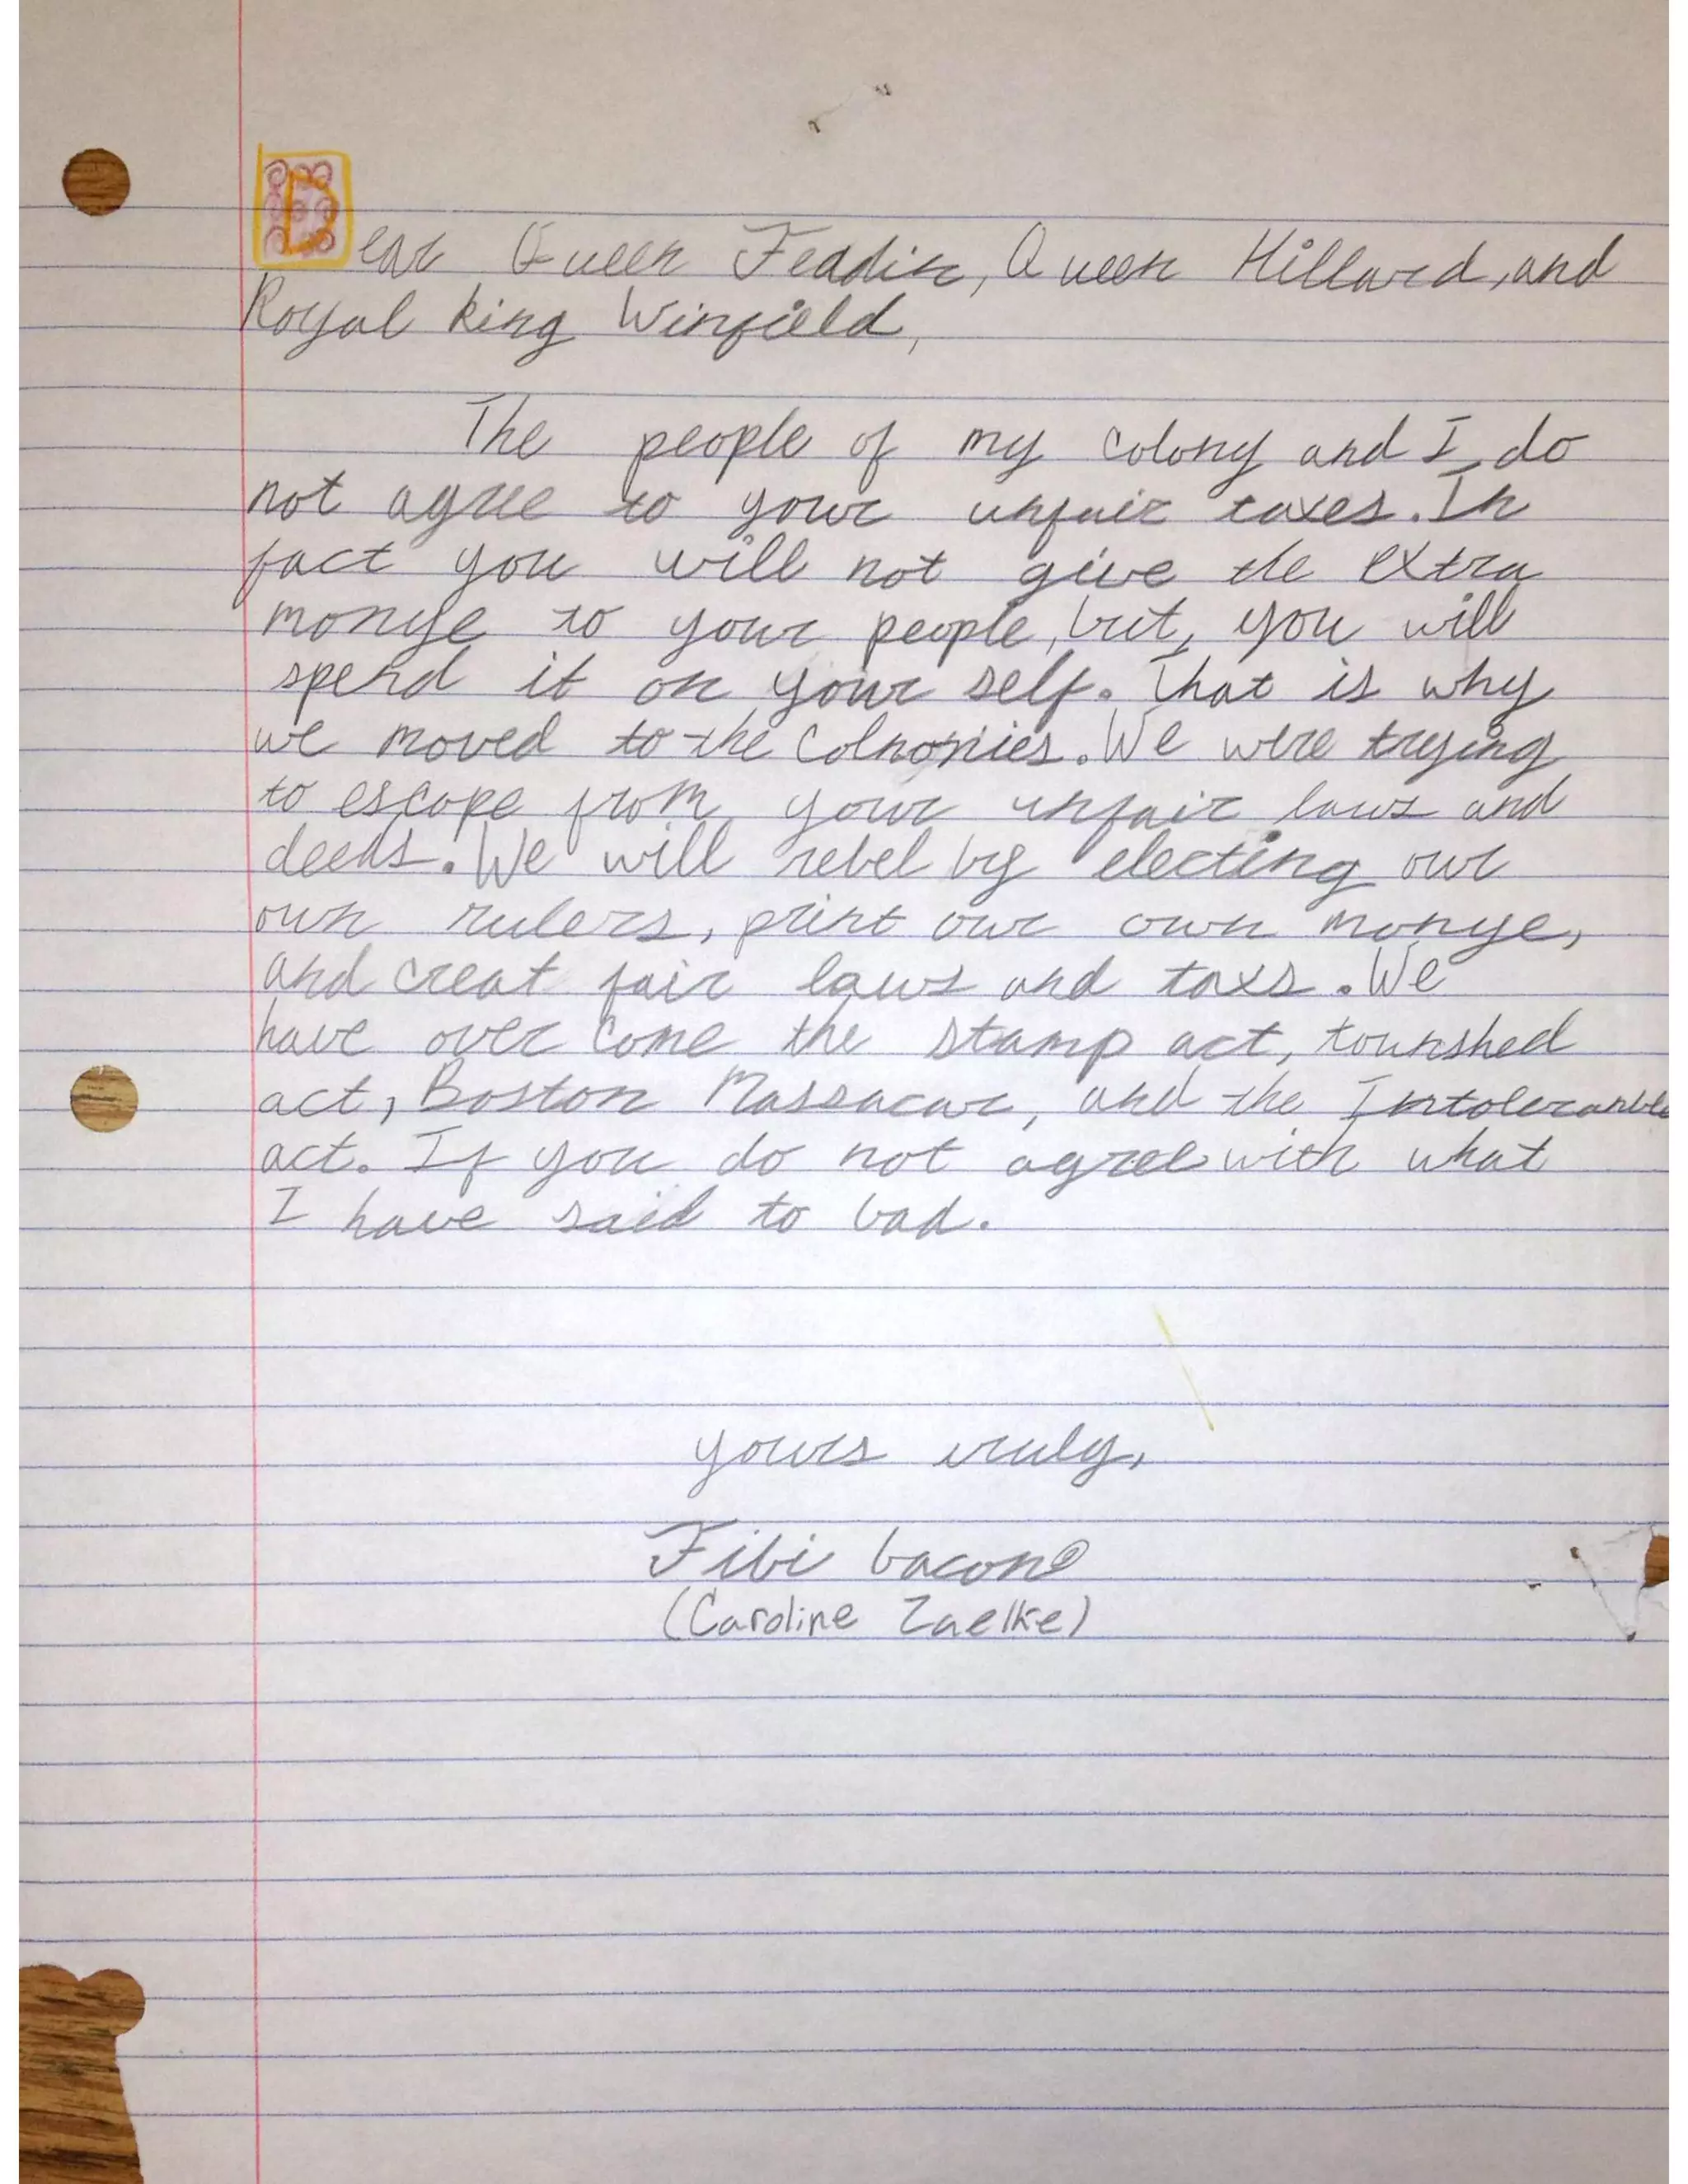 Dear Queen Feddin, Queen Hillard, and
Royal king Winfield,
The people of my colony and I do
not agree to your unfair taxes. In
fact you will not give the extra
monye to your people, but, you will
spend it on your self. That is why
we moved to the Colnonies. We were trying
to escape from your unfair laws and
deeds. We will rebel by electing our
own rulers, print our own monye,
and creat fair laws and taxs. We
have over come the stamp act, tounshed
act, Boston Massacar, and the Intoleranble
act. If you do not agree with what
I have said to bad.
yours truly,
Fibi bacon
(Caroline Zaelke)